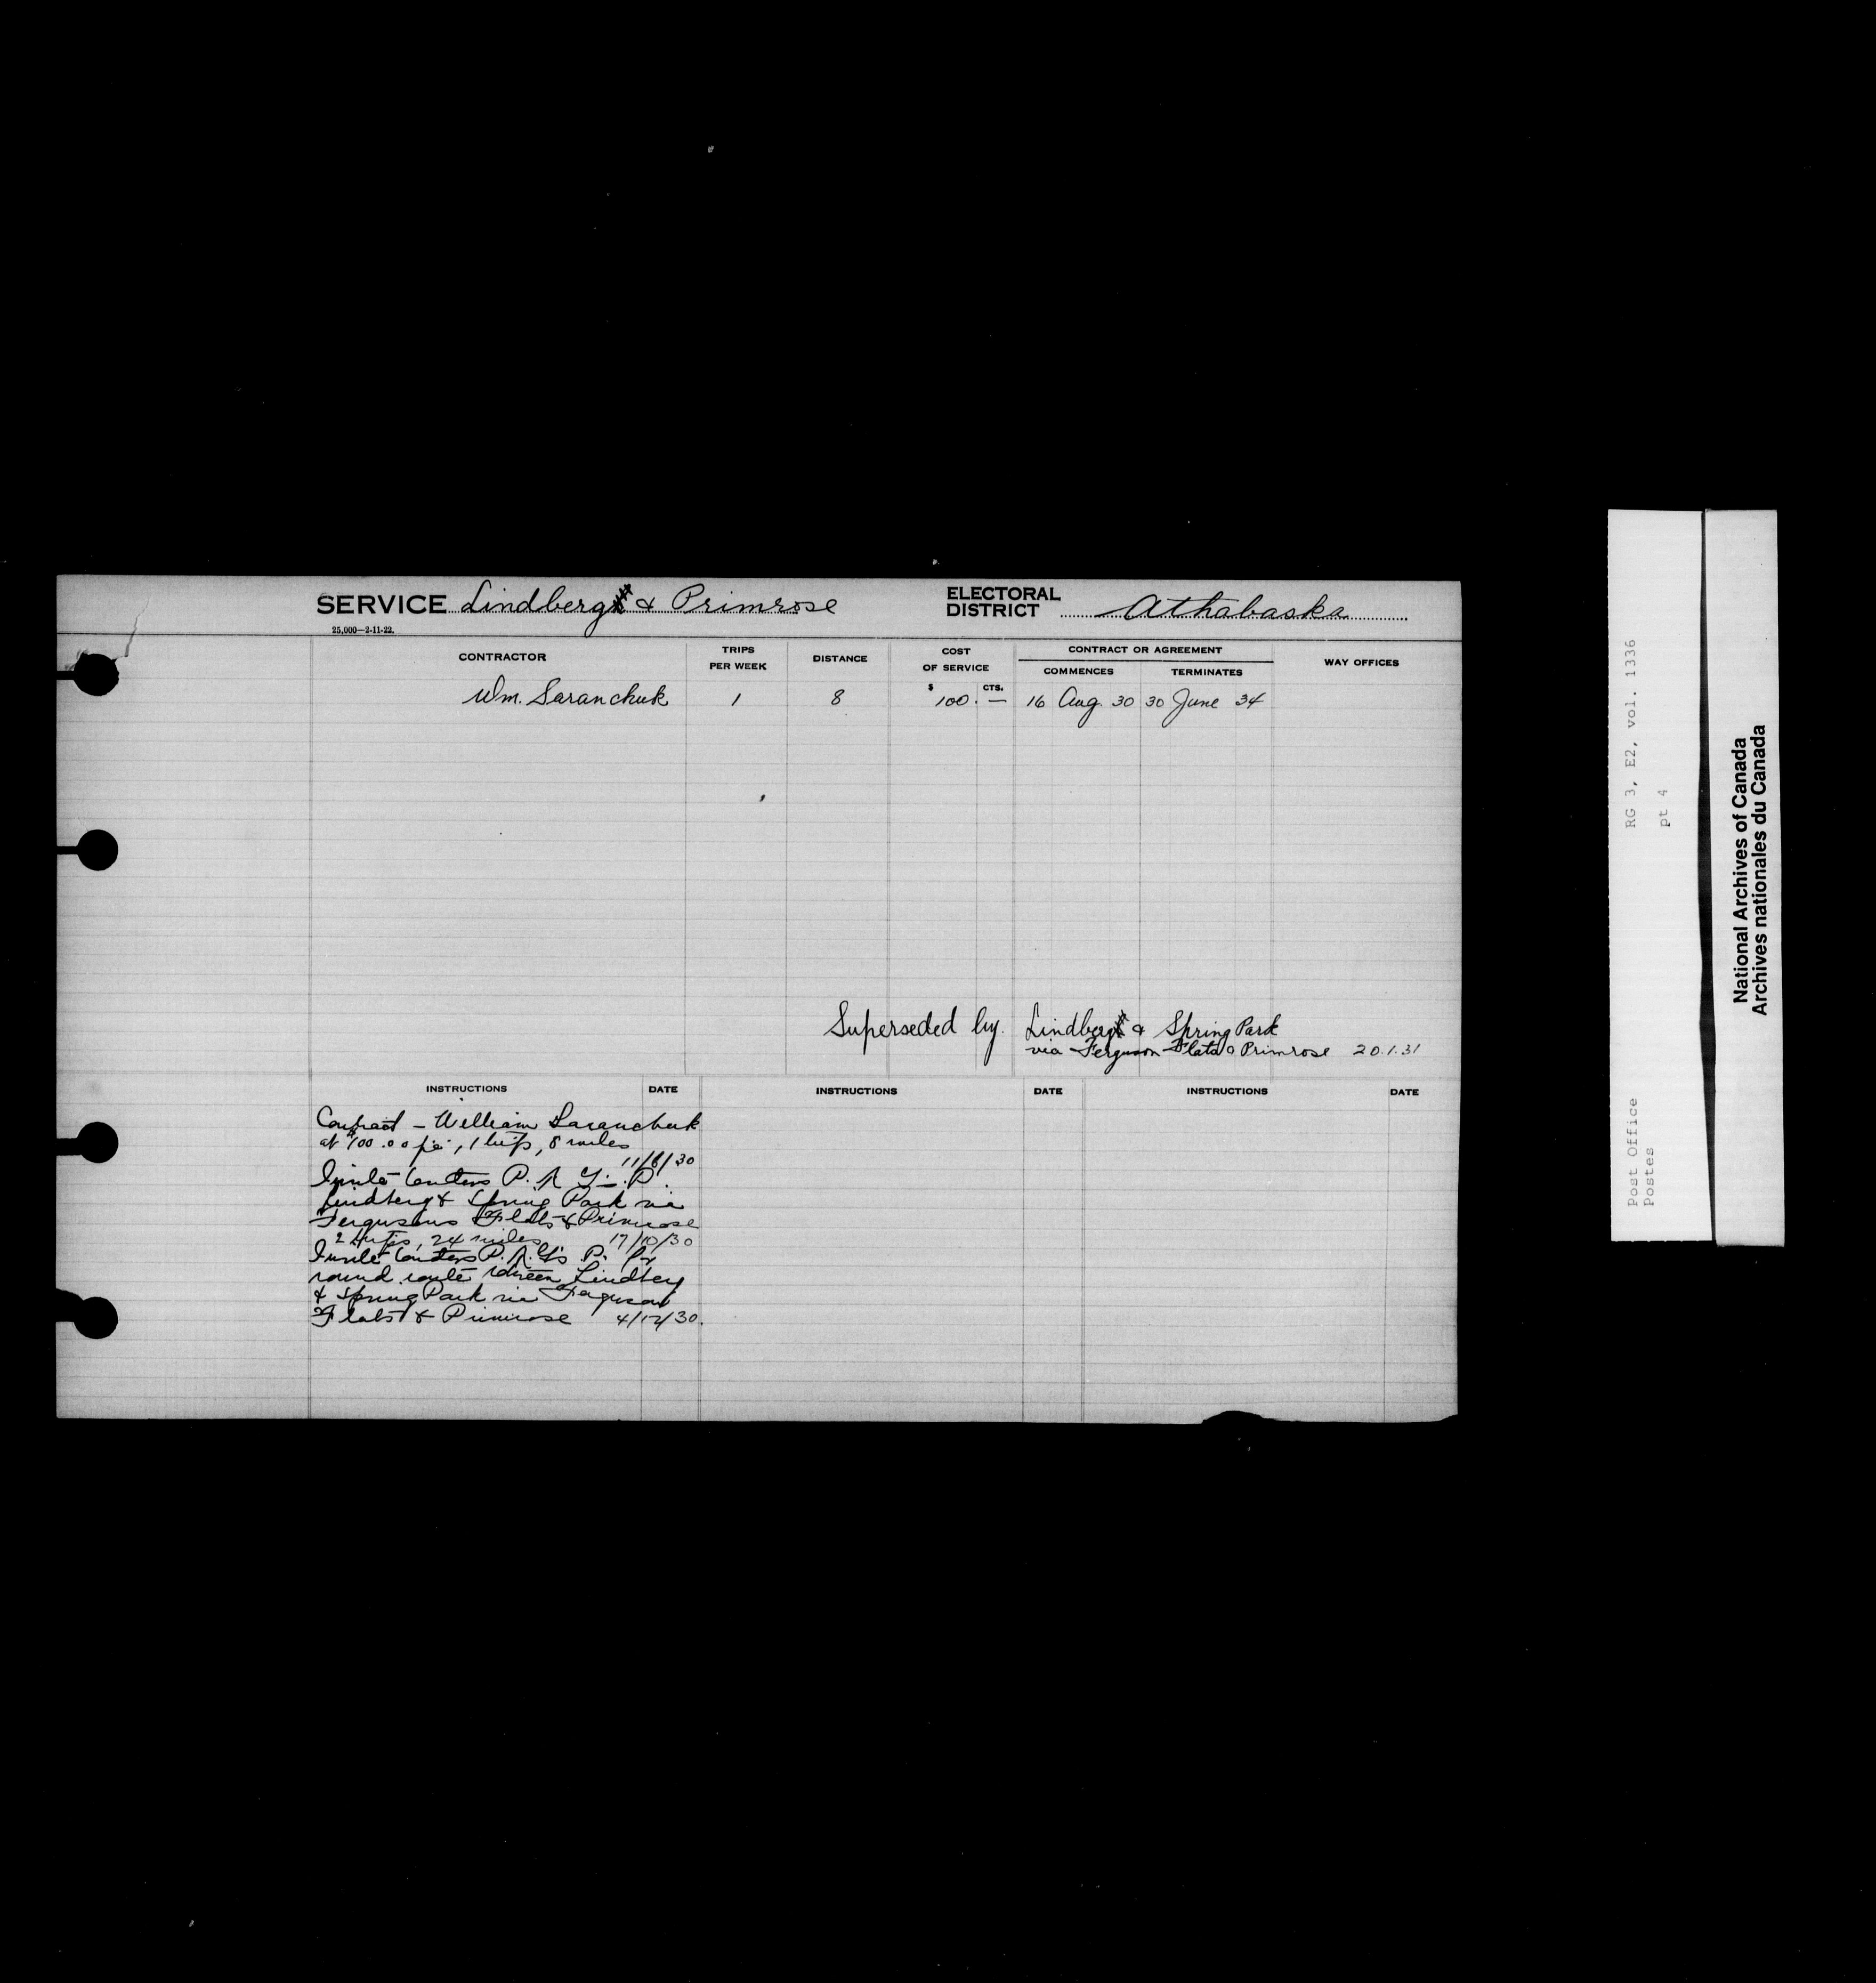 SERVICE Lindberg & Primrose
25,000—2-11-22.
ELECTORAL DISTRICT Athabaska
CONTRACTOR
TRIPS PER WEEK
DISTANCE
COST OF SERVICE
CONTRACT OR AGREEMENT
COMMENCES
TERMINATES
WAY OFFICES
$ CTS.
Wm. Saranchuk 1 8 100. — 16 Aug. 30 30 June 34
Superseded by Lindberg & Spring Park
via Ferguson Flats & Primrose 20.1.31
INSTRUCTIONS DATE INSTRUCTIONS DATE INSTRUCTIONS DATE
Contract – William Saranchuk
at $100.00 p.a., 1 trip, 8 miles
11/8/30
Invite tenders P.
Lindberg & Spring Park via
Fergusons Flats & Primrose
2 trips, 24 miles 17/10/30
Invite tenders P. for
round route between Lindberg
& Spring Park via Ferguson
Flats & Primrose 4/12/30.
RG 3, E2, vol. 1336
pt 4
Post Office
Postes
National Archives of Canada
Archives nationales du Canada